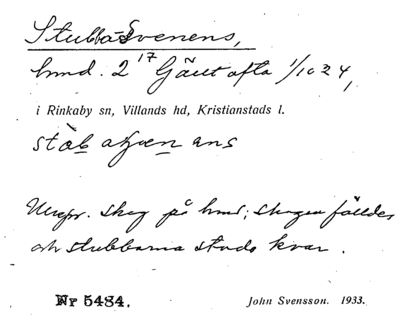 Stubba-Svenens,
hmd. 2 17 Gäret afla 1/1024,
i Rinkaby sn, Villands hd, Kristianstads l.
Urspr. skog på hmd; skogen fälldes
och stubbarna stodo kvar.
Nr 5484.
John Svensson. 1933.